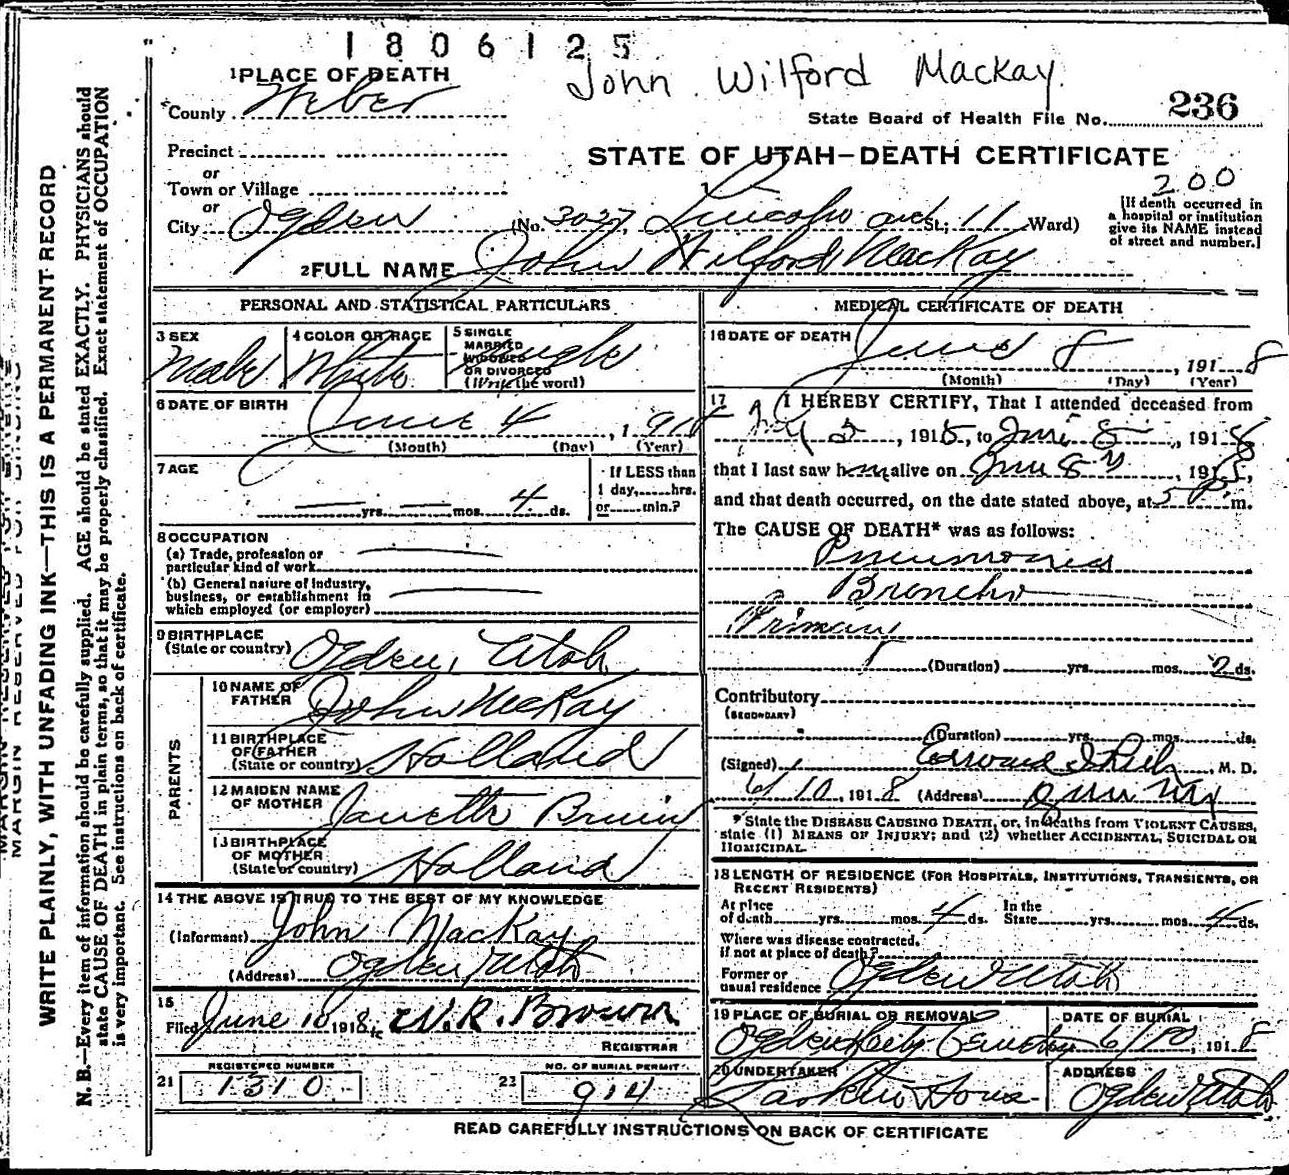 1806125
John Wilford Mackay
1 PLACE OF DEATH
County Weber
State Board of Health File No. 236
Precinct
STATE OF UTAH—DEATH CERTIFICATE
or
Town or Village
200
or
City Ogden (No. 3027, Lincoln St; 11 Ward)
[If death occurred in a hospital or institution give its NAME instead of street and number.]
2 FULL NAME John Wilford MacKay
PERSONAL AND STATISTICAL PARTICULARS
3 SEX Male
4 COLOR OR RACE White
5 SINGLE MARRIED WIDOWED OR DIVORCED (Write the word) Single
6 DATE OF BIRTH June 4, 191
(Month) (Day) (Year)
7 AGE
— yrs. — mos. 4 ds.
If LESS than 1 day, hrs. or min.?
8 OCCUPATION
(a) Trade, profession or particular kind of work
(b) General nature of industry, business, or establishment in which employed (or employer)
9 BIRTHPLACE (State or country) Ogden, Utah
PARENTS
10 NAME OF FATHER John MacKay
11 BIRTHPLACE OF FATHER (State or country) Holland
12 MAIDEN NAME OF MOTHER Janetta Bruin
13 BIRTHPLACE OF MOTHER (State or country) Holland
14 THE ABOVE IS TRUE TO THE BEST OF MY KNOWLEDGE
(Informant) John MacKay
(Address) Ogden Utah
15 Filed June 10 1918 W. R. Brown
REGISTRAR
REGISTERED NUMBER
21 1310
NO. OF BURIAL PERMIT
22 914
MEDICAL CERTIFICATE OF DEATH
16 DATE OF DEATH June 8, 1918
(Month) (Day) (Year)
17 I HEREBY CERTIFY, That I attended deceased from
5, 191, to June 8, 1918,
that I last saw him alive on June 8, 191,
and that death occurred, on the date stated above, at 5 P. m.
The CAUSE OF DEATH* was as follows:
Pneumonia
Broncho
Primary
(Duration) yrs. mos. 2 ds.
Contributory
(SECONDARY)
(Duration) yrs. mos. ds.
(Signed) Edward I Rich, M. D.
6/10 1918 (Address)
*State the DISEASE CAUSING DEATH, or, in deaths from VIOLENT CAUSES, state (1) MEANS OF INJURY; and (2) whether ACCIDENTAL, SUICIDAL OR HOMICIDAL.
18 LENGTH OF RESIDENCE (FOR HOSPITALS, INSTITUTIONS, TRANSIENTS, OR RECENT RESIDENTS)
At place of death yrs. mos. 4 ds. In the State yrs. mos. 4 ds.
Where was disease contracted, if not at place of death?
Former or usual residence Ogden Utah
19 PLACE OF BURIAL OR REMOVAL Ogden City Cemetery
DATE OF BURIAL 6/10, 1918
20 UNDERTAKER Larkin & Sons
ADDRESS Ogden Utah
READ CAREFULLY INSTRUCTIONS ON BACK OF CERTIFICATE
MARGIN RESERVED FOR BINDING
WRITE PLAINLY, WITH UNFADING INK—THIS IS A PERMANENT RECORD
N. B.—Every item of information should be carefully supplied. AGE should be stated EXACTLY. PHYSICIANS should
state CAUSE OF DEATH in plain terms, so that it may be properly classified. Exact statement of OCCUPATION
is very important. See instructions on back of certificate.